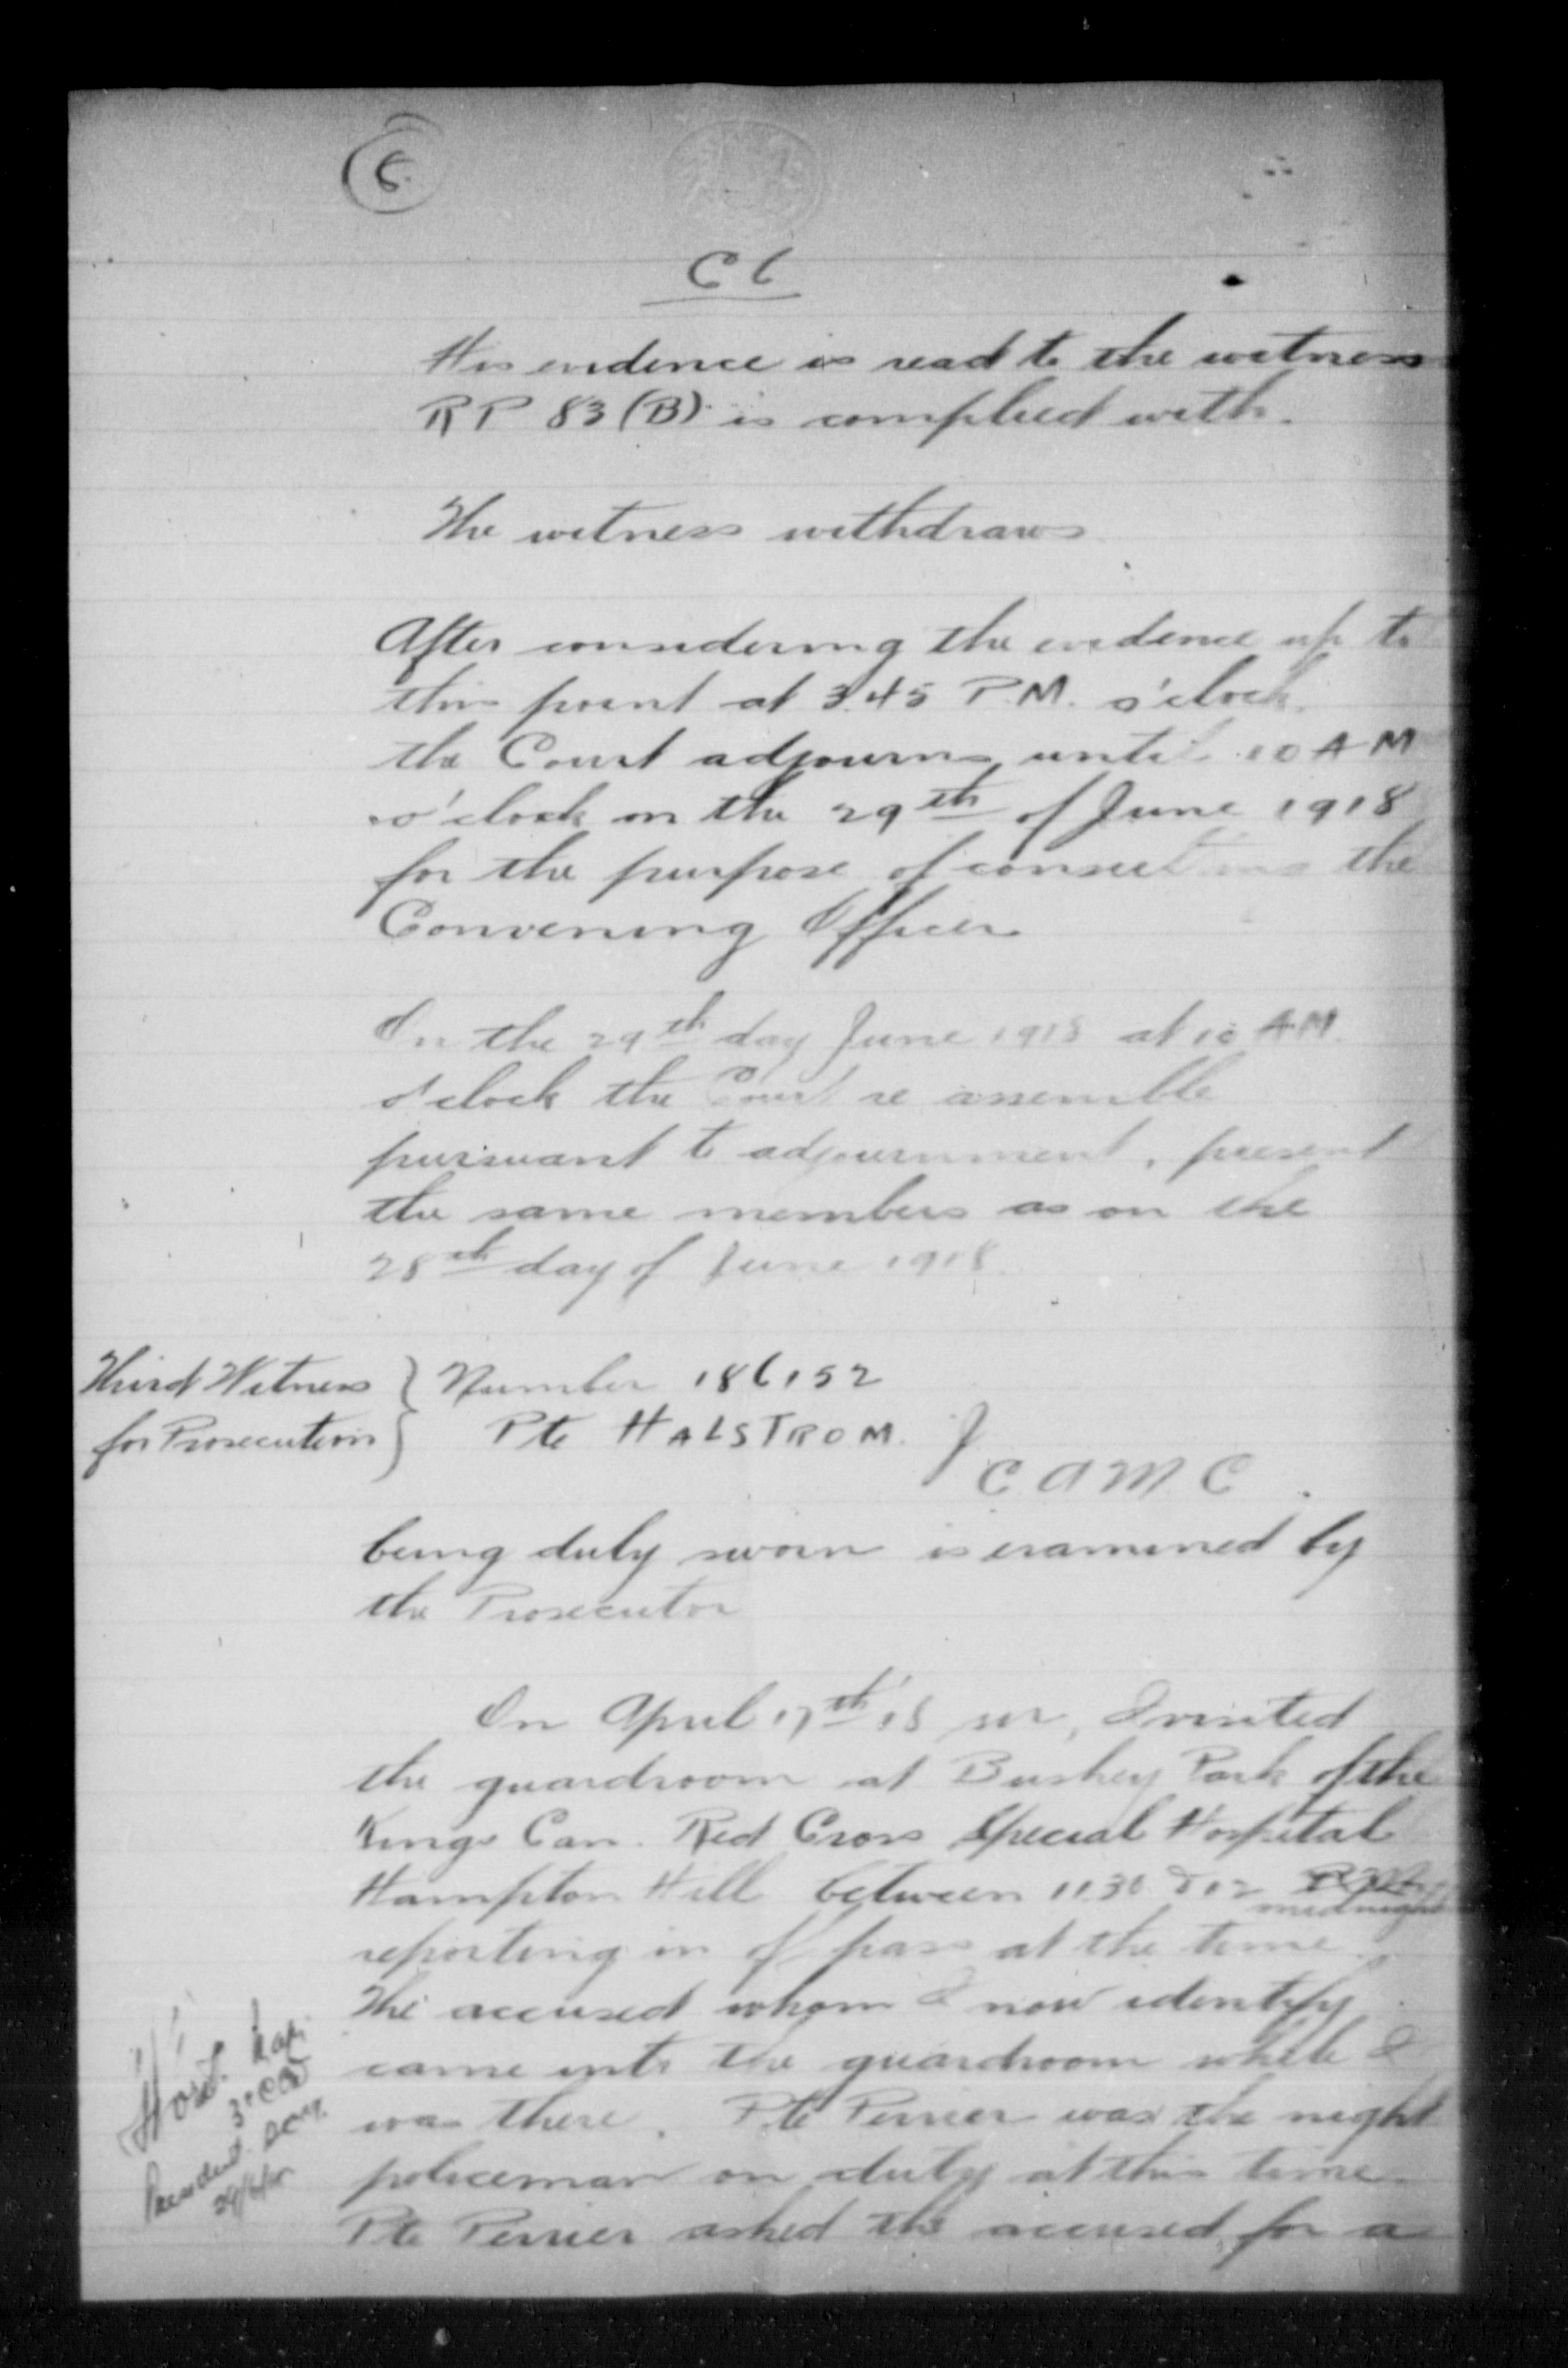 6
C 6
His evidence is read to the witness
R P 83 (B) is complied with.
The witness withdraws
After considering the evidence up to
this point at 3.45 P.M. o'clock
the Court adjourns until 10 A M
o'clock on the 29th of June 1918
for the purpose of consulting the
Convening Officer
On the 29th day June 1918 at 10 AM.
o'clock the Court re assemble
pursuant to adjournment, present
the same members as on the
28th day of June 1918.
Third Witness } Number 186152
for Prosecution } Pte HALSTROM. J
C A M C.
being duly sworn is examined by
the Prosecutor
On April 17th '18 sir, I visited
the guardroom at Bushey Park of the
Kings Can. Red Cross Special Hospital
Hampton Hill between 11.30 & 12
midnight
reporting in of pass at the time.
The accused whom I now identify
came into the guardroom while I
was there. Pte Perrier was the night
policeman on duty at this time.
Pte Perrier asked the accused for a
President
29/6/18